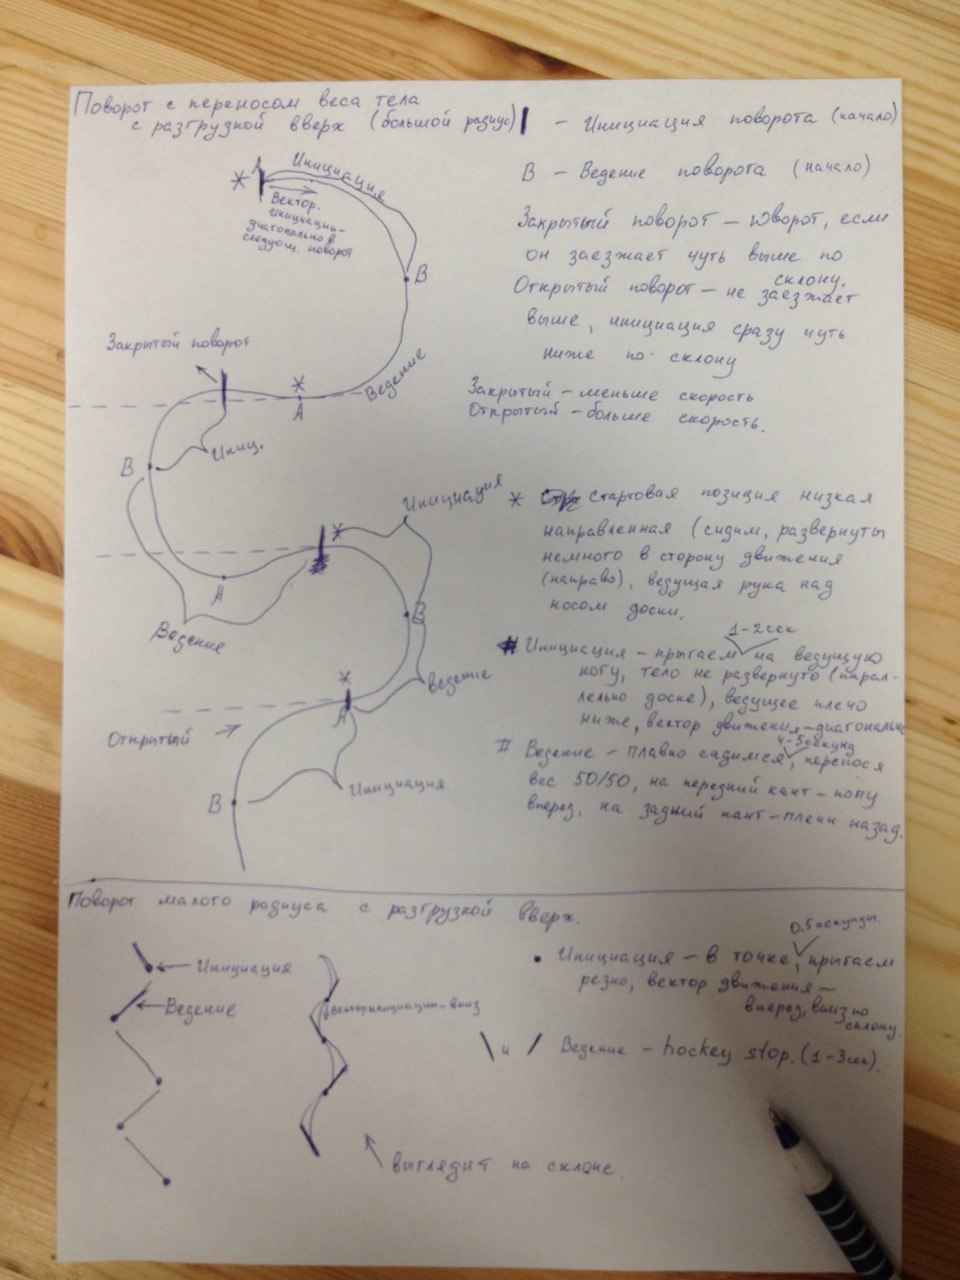 Поворот с переносом веса тела
с разгрузкой вверх (большой радиус)
- Инициация поворота (начало)
В - Ведение поворота (начало)
Закрытый поворот - поворот, если
он заезжает чуть выше по
склону.
Открытый поворот - не заезжает
выше, инициация сразу чуть
ниже по склону
Закрытый - меньше скорость
Открытый - больше скорость.
А
Инициация
Вектор
инициации-
диагонально в
следующ. поворот
В
Ведение
Закрытый поворот
А
В
Иниц.
Инициация
А
Ведение
В
Ведение
Открытый
А
В
Инициация
* стартовая позиция низкая
направленная (сидим, развернуты
немного в сторону движения
(направо), ведущая рука над
носом доски.
1-2 сек
Инициация - прыгаем на ведущую
ногу, тело не развернуто (парал-
лельно доске), ведущее плечо
ниже, вектор движения - диагонально
4-5 секунд
II Ведение - плавно садимся, перенося
вес 50/50, на передний кант - попу
вперед, на задний кант - плечи назад.
Поворот малого радиуса с разгрузкой вверх.
Инициация
Ведение
вектор инициации - вниз
выглядит на склоне
0.5 секунды.
• Инициация - в точке, прыгаем
резко, вектор движения -
вперед, вниз по
склону.
\ и / Ведение - hockey stop. (1-3 сек).